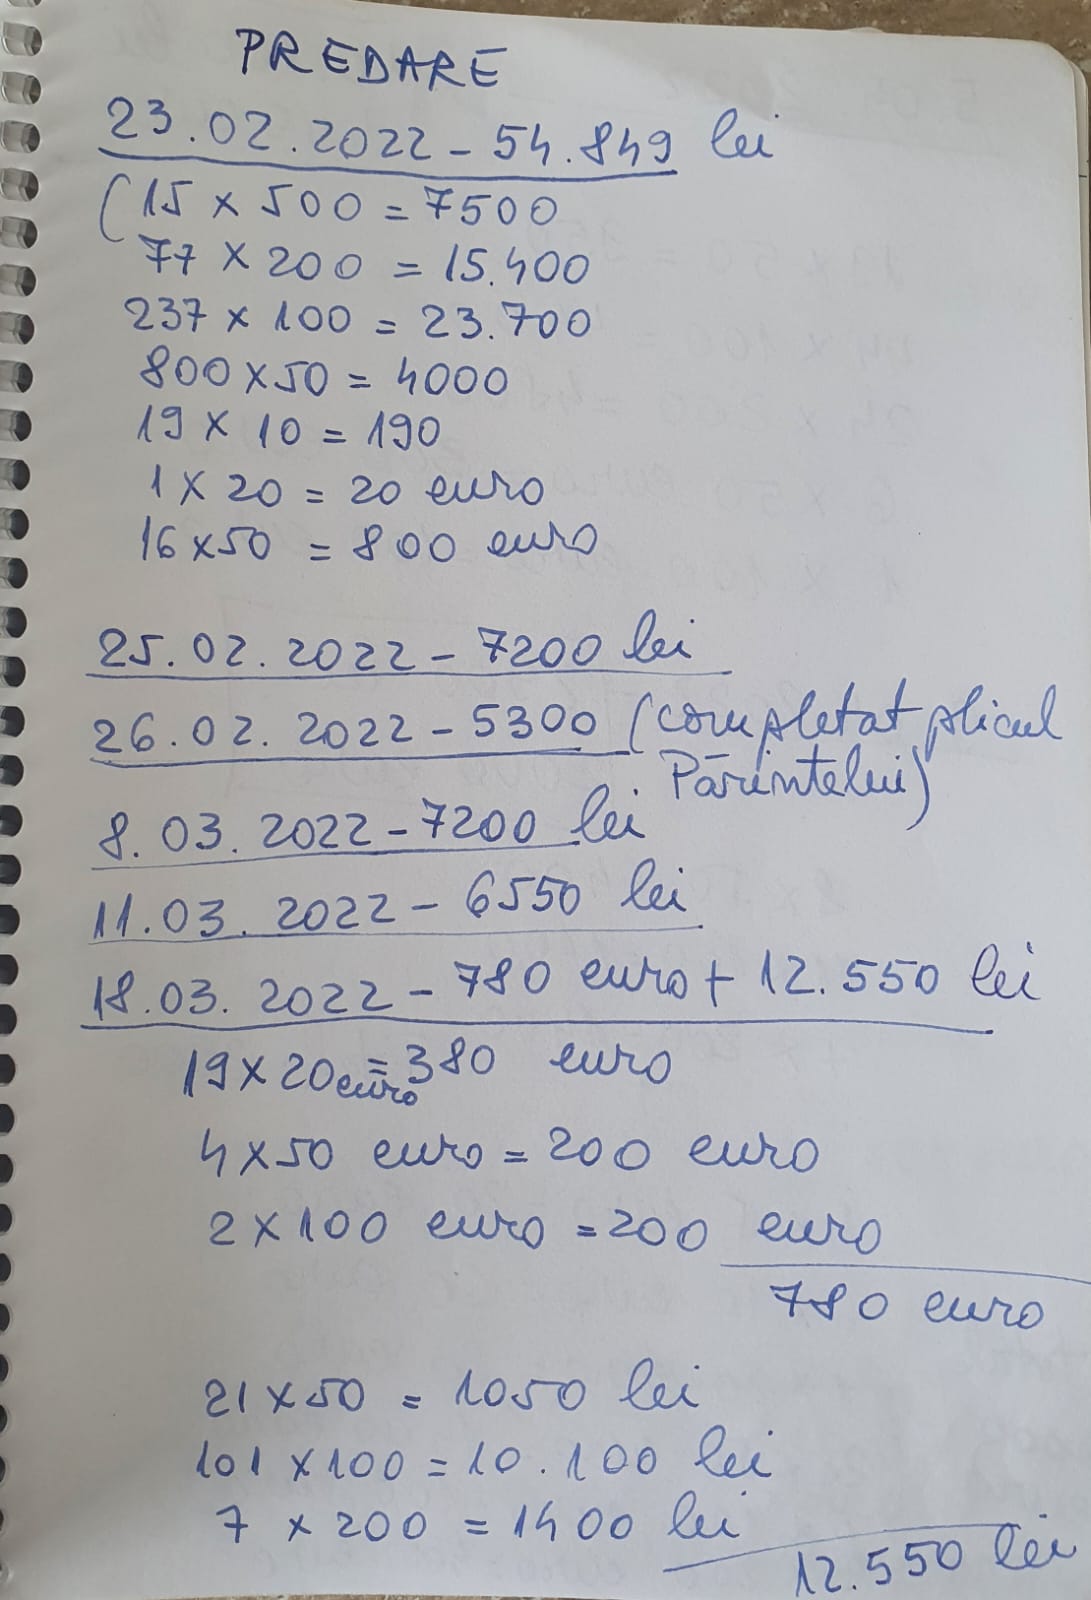 PREDARE
23.02.2022 - 54.849 lei
(15 x 500 = 7500
77 x 200 = 15.400
237 x 100 = 23.700
800 x 50 = 4000
19 x 10 = 190
1 x 20 = 20 euro
16 x 50 = 800 euro
25.02.2022 - 7200 lei
26.02.2022 - 5300 (completat plicul
Părintelui)
8.03.2022 - 7200 lei
11.03.2022 - 6550 lei
18.03.2022 - 780 euro + 12.550 lei
19 x 20 euro = 380 euro
4 x 50 euro = 200 euro
2 x 100 euro = 200 euro
780 euro
21 x 50 = 1050 lei
101 x 100 = 10.100 lei
7 x 200 = 1400 lei
12.550 lei